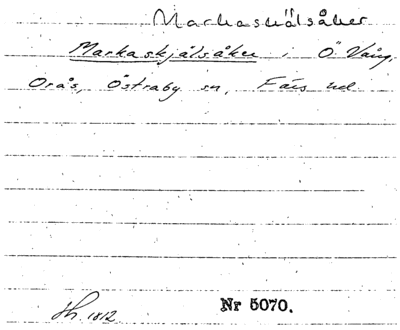 Markaskälsåker
Markaskjälsåker i Ö Vång,
Orås, Östraby sn, Färs hd
Sh. 1812
Nr 5070.